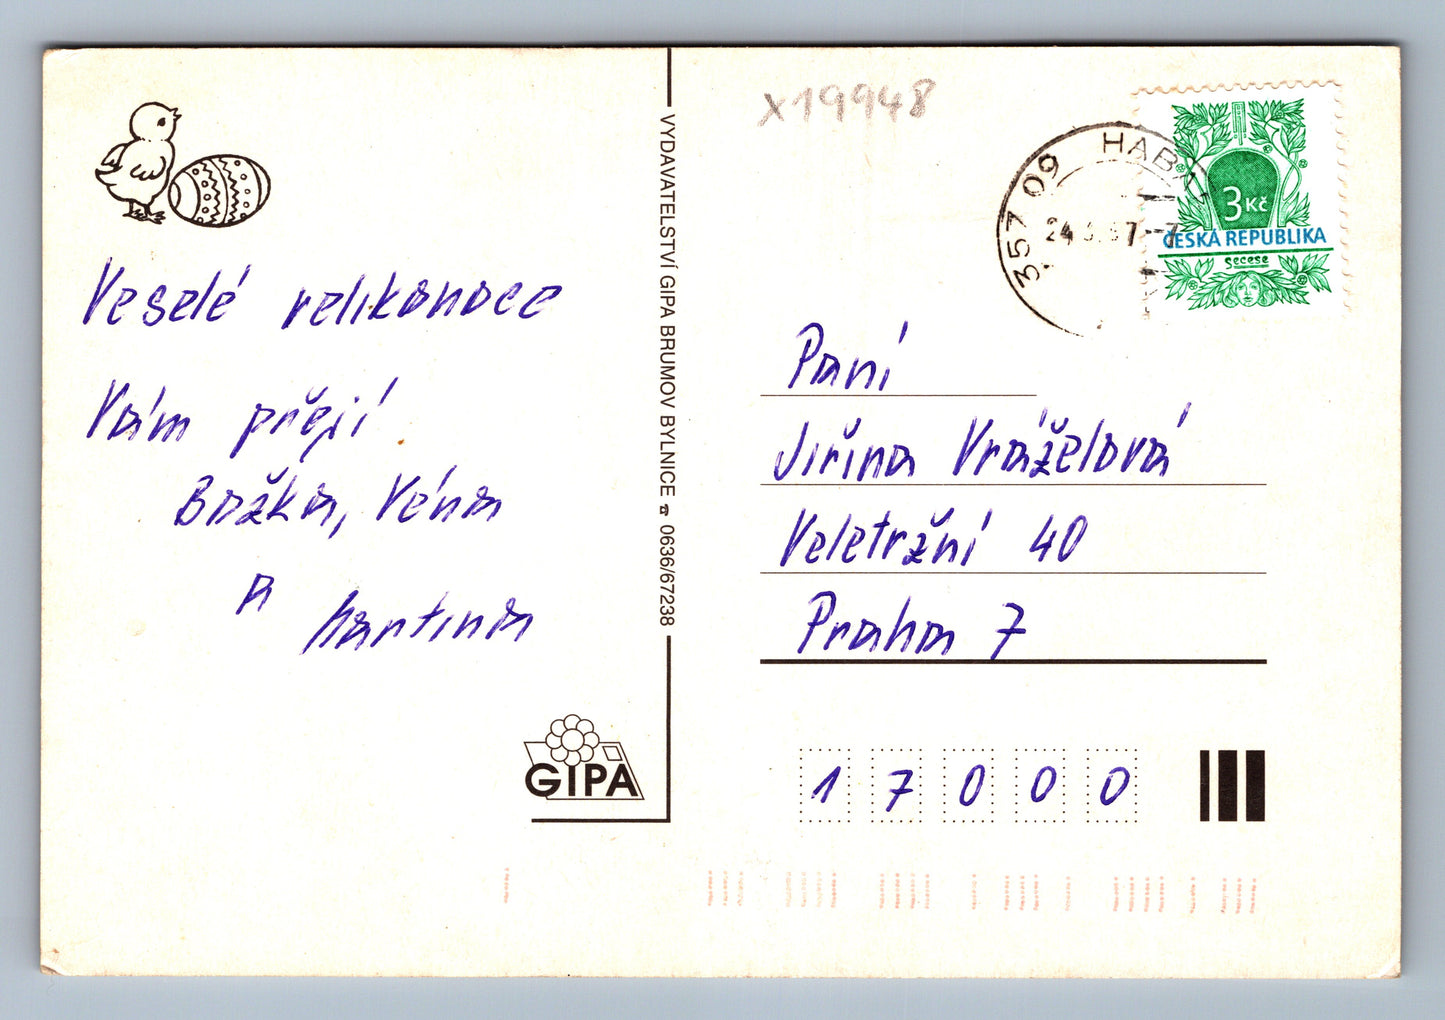 Veselé velikonoce
Vám přejí
Božka, Véna
a Martina
VYDAVATELSTVÍ GIPA BRUMOV BYLNICE ☎ 0636/67238
GIPA
X19948
357 09 HAB
24
3 Kč
ČESKÁ REPUBLIKA
Secese
Paní
Jiřina Vráželová
Veletržní 40
Praha 7
1 7 0 0 0